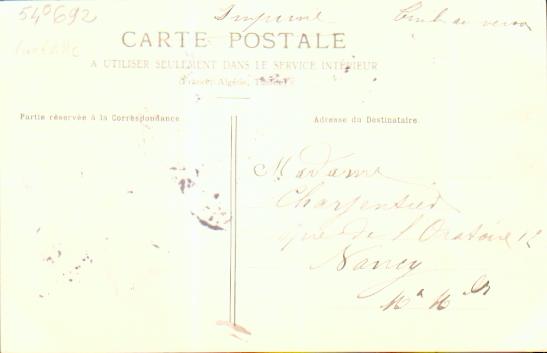 54°692
Imprimé
CARTE POSTALE
A UTILISER SEULEMENT DANS LE SERVICE INTÉRIEUR
(France, Algérie, Tunisie)
Partie réservée à la Correspondance
Adresse du Destinataire
Madame
Charpentier
rue de l'Oratoire 12
Nancy
Mthe Mlle